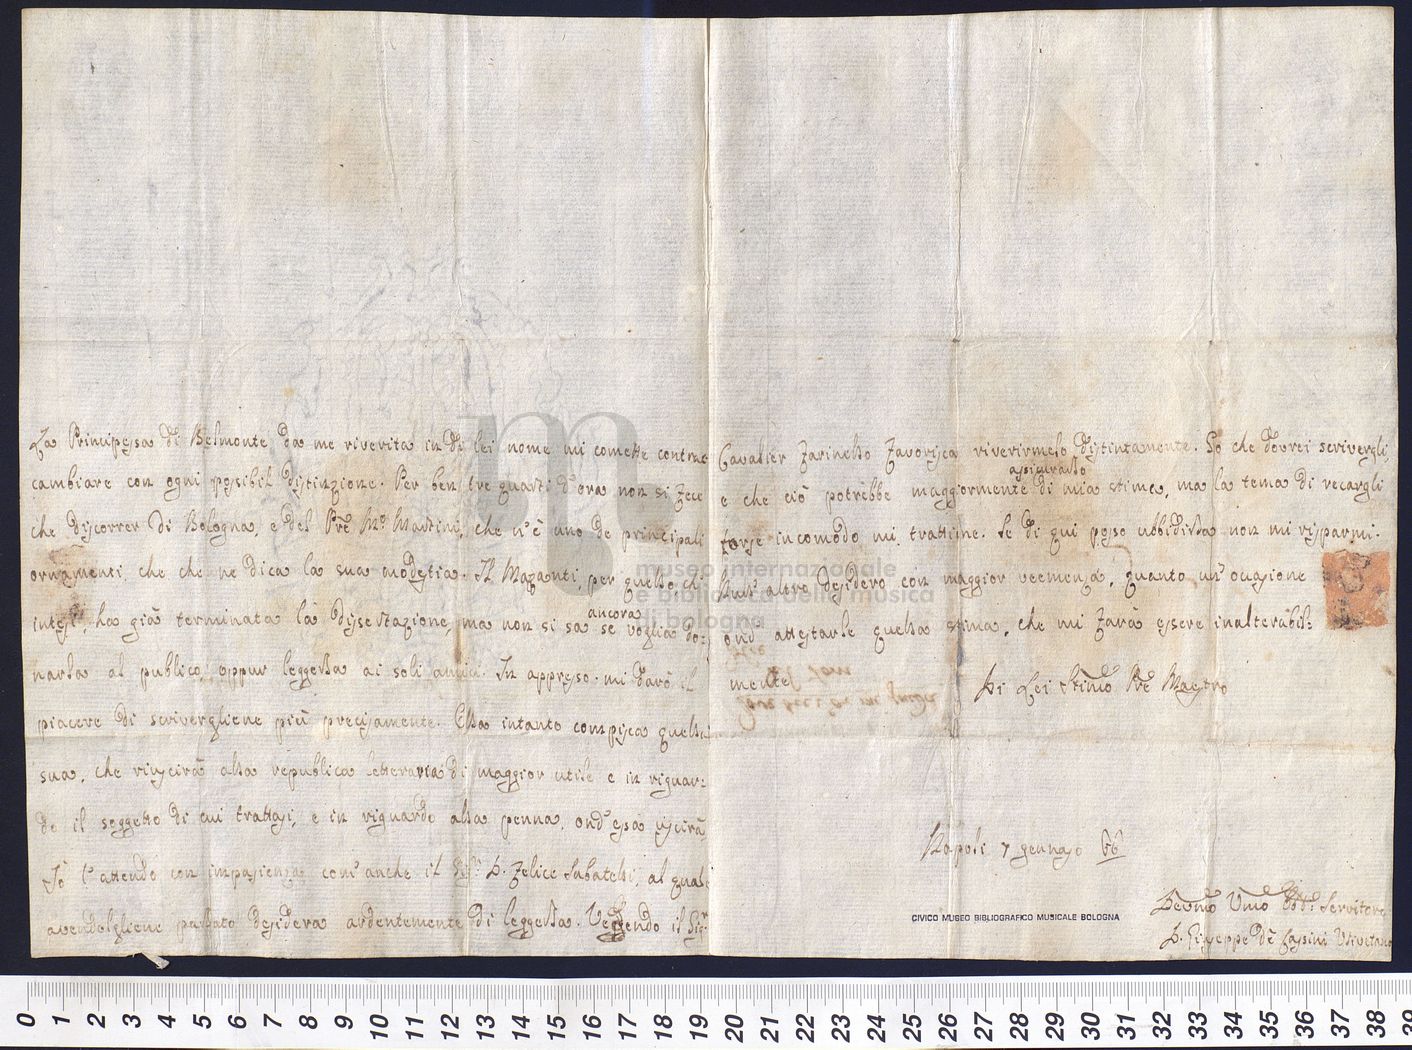 La Principessa di Belmonte da me riverita in di lei nome mi comette contrac
cambiare con ogni possibil distinzione. Per ben tre quarti d'ora non si fece
che discorrer di Bologna, e del Pre Mro Martini, che n'è uno de principali
ornamenti, che che ne dica la sua modestia. Il Mazanti, per quello chi
intesi, ha già terminata la dissertazione, ma non si sa se ancora voglia do-
narla al publico, oppur leggerla ai soli amici. In appresso mi darò il
piacere di scrivergliene più precisamente. Ella intanto compisca quella
sua, che riuscirà alla republica letteraria di maggior utile e in riguar-
do il soggetto di cui trattasi, e in riguardo alla penna, ond'essa uscirà
Io l'attendo con impazienza, com'anche il Sigr D. Felice Sabatelli, al quale
avendogliene parlato desidera ardentemente di leggerla. Vedendo il Sigr
Cavalier Farinello favorisca riverirmelo distintamente. So che dovrei scrivergli,
e che ciò potrebbe maggiormente assicurarlo di mia stima, ma la tema di recargli
forse incomodo mi trattiene. Se di qui posso ubbidirla non mi risparmi.
Null'altro desidero con maggior veemenza, quanto un'occasione
ond'attestarle quella stima, che mi farà essere inalterabil-
mente
Di Lei Stimo Pre Maestro
Napoli 7 gennajo 66
Devmo Umo Obbo Servitore
D. Giuseppe de Cassini
museo internazionale
e biblioteca della musica
di bologna
CIVICO MUSEO BIBLIOGRAFICO MUSICALE BOLOGNA
0 1 2 3 4 5 6 7 8 9 10 11 12 13 14 15 16 17 18 19 20 21 22 23 24 25 26 27 28 29 30 31 32 33 34 35 36 37 38 39